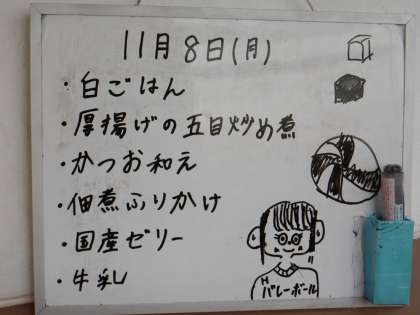 11月8日(月)
・白ごはん
・厚揚げの五目炒め煮
・かつお和え
・佃煮ふりかけ
・国産ゼリー
・牛乳
バレーボール